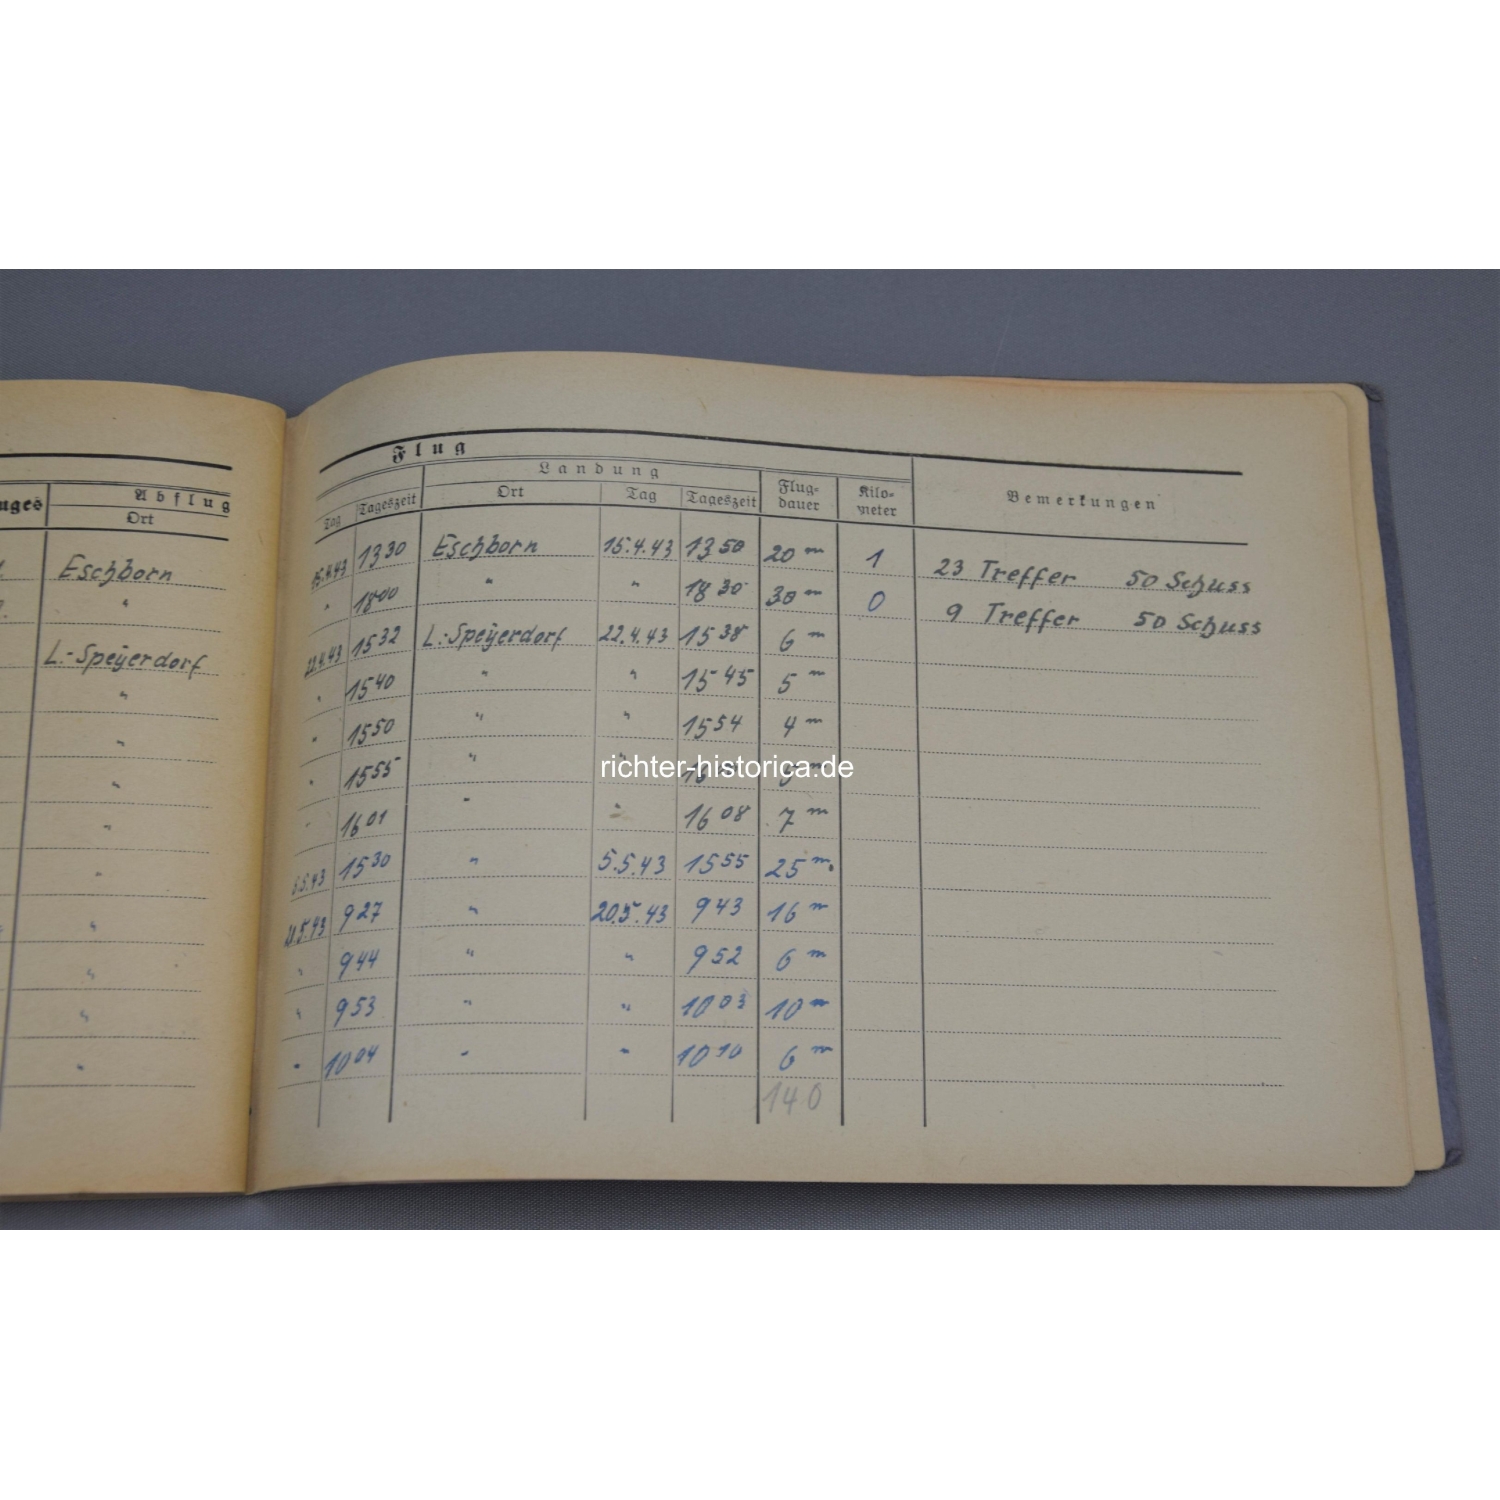 Flug
Landung
Abflug
Flug-
dauer
Kilo-
meter
Bemerkungen
uges
Ort
Tag Tageszeit Ort Tag Tageszeit
Eschborn 15.4.43 13 30 Eschborn 15.4.43 13 50 20 m 1 23 Treffer 50 Schuss
" " 18 00 " " 18 30 30 m 0 9 Treffer 50 Schuss
L.-Speyerdorf 22.4.43 15 32 L.-Speyerdorf 22.4.43 15 38 6 m
" " 15 40 " " 15 45 5 m
" " 15 50 " " 15 54 4 m
" " 15 55 " " m
" " 16 01 " " 16 08 7 m
" 5.5.43 15 30 " 5.5.43 15 55 25 m
" 9 27 " 20.5.43 9 43 16 m
" " 9 44 " " 9 52 6 m
" " 9 53 " " 10 03 10 m
" " 10 04 " " 10 10 6 m
140
richter-historica.de